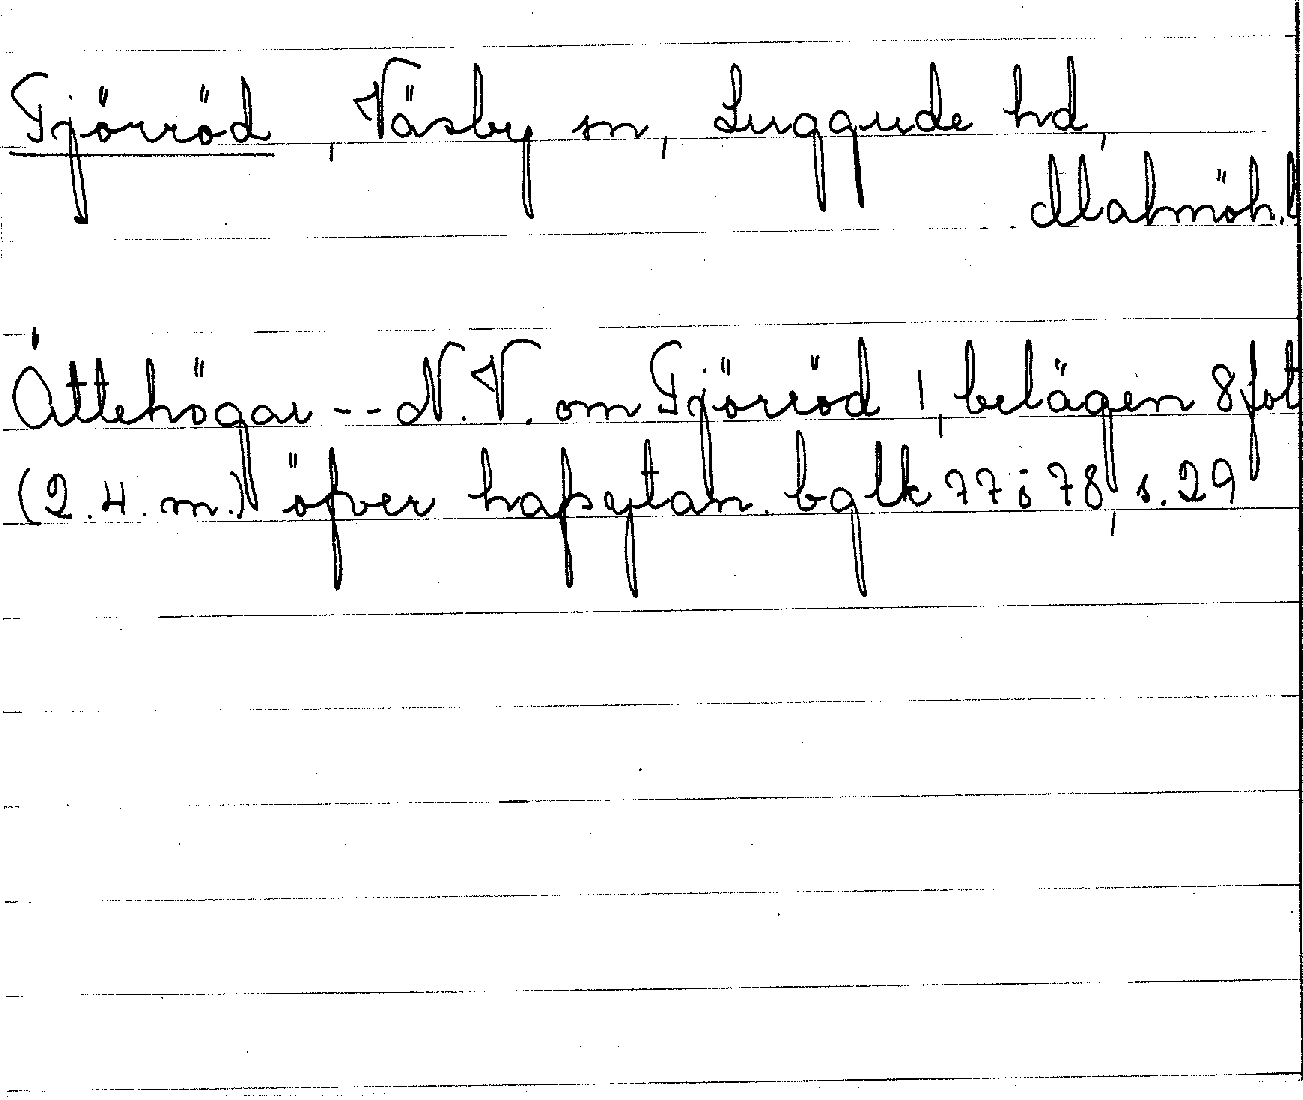 Tjörröd, Väsby sn, Luggude hd,
Malmöh. l
Ättehögar -- N. V. om Tjörröd 1, belägen 8 fot
(2.4. m.) öfver hafsytan. bglk 77 o 78, s. 29